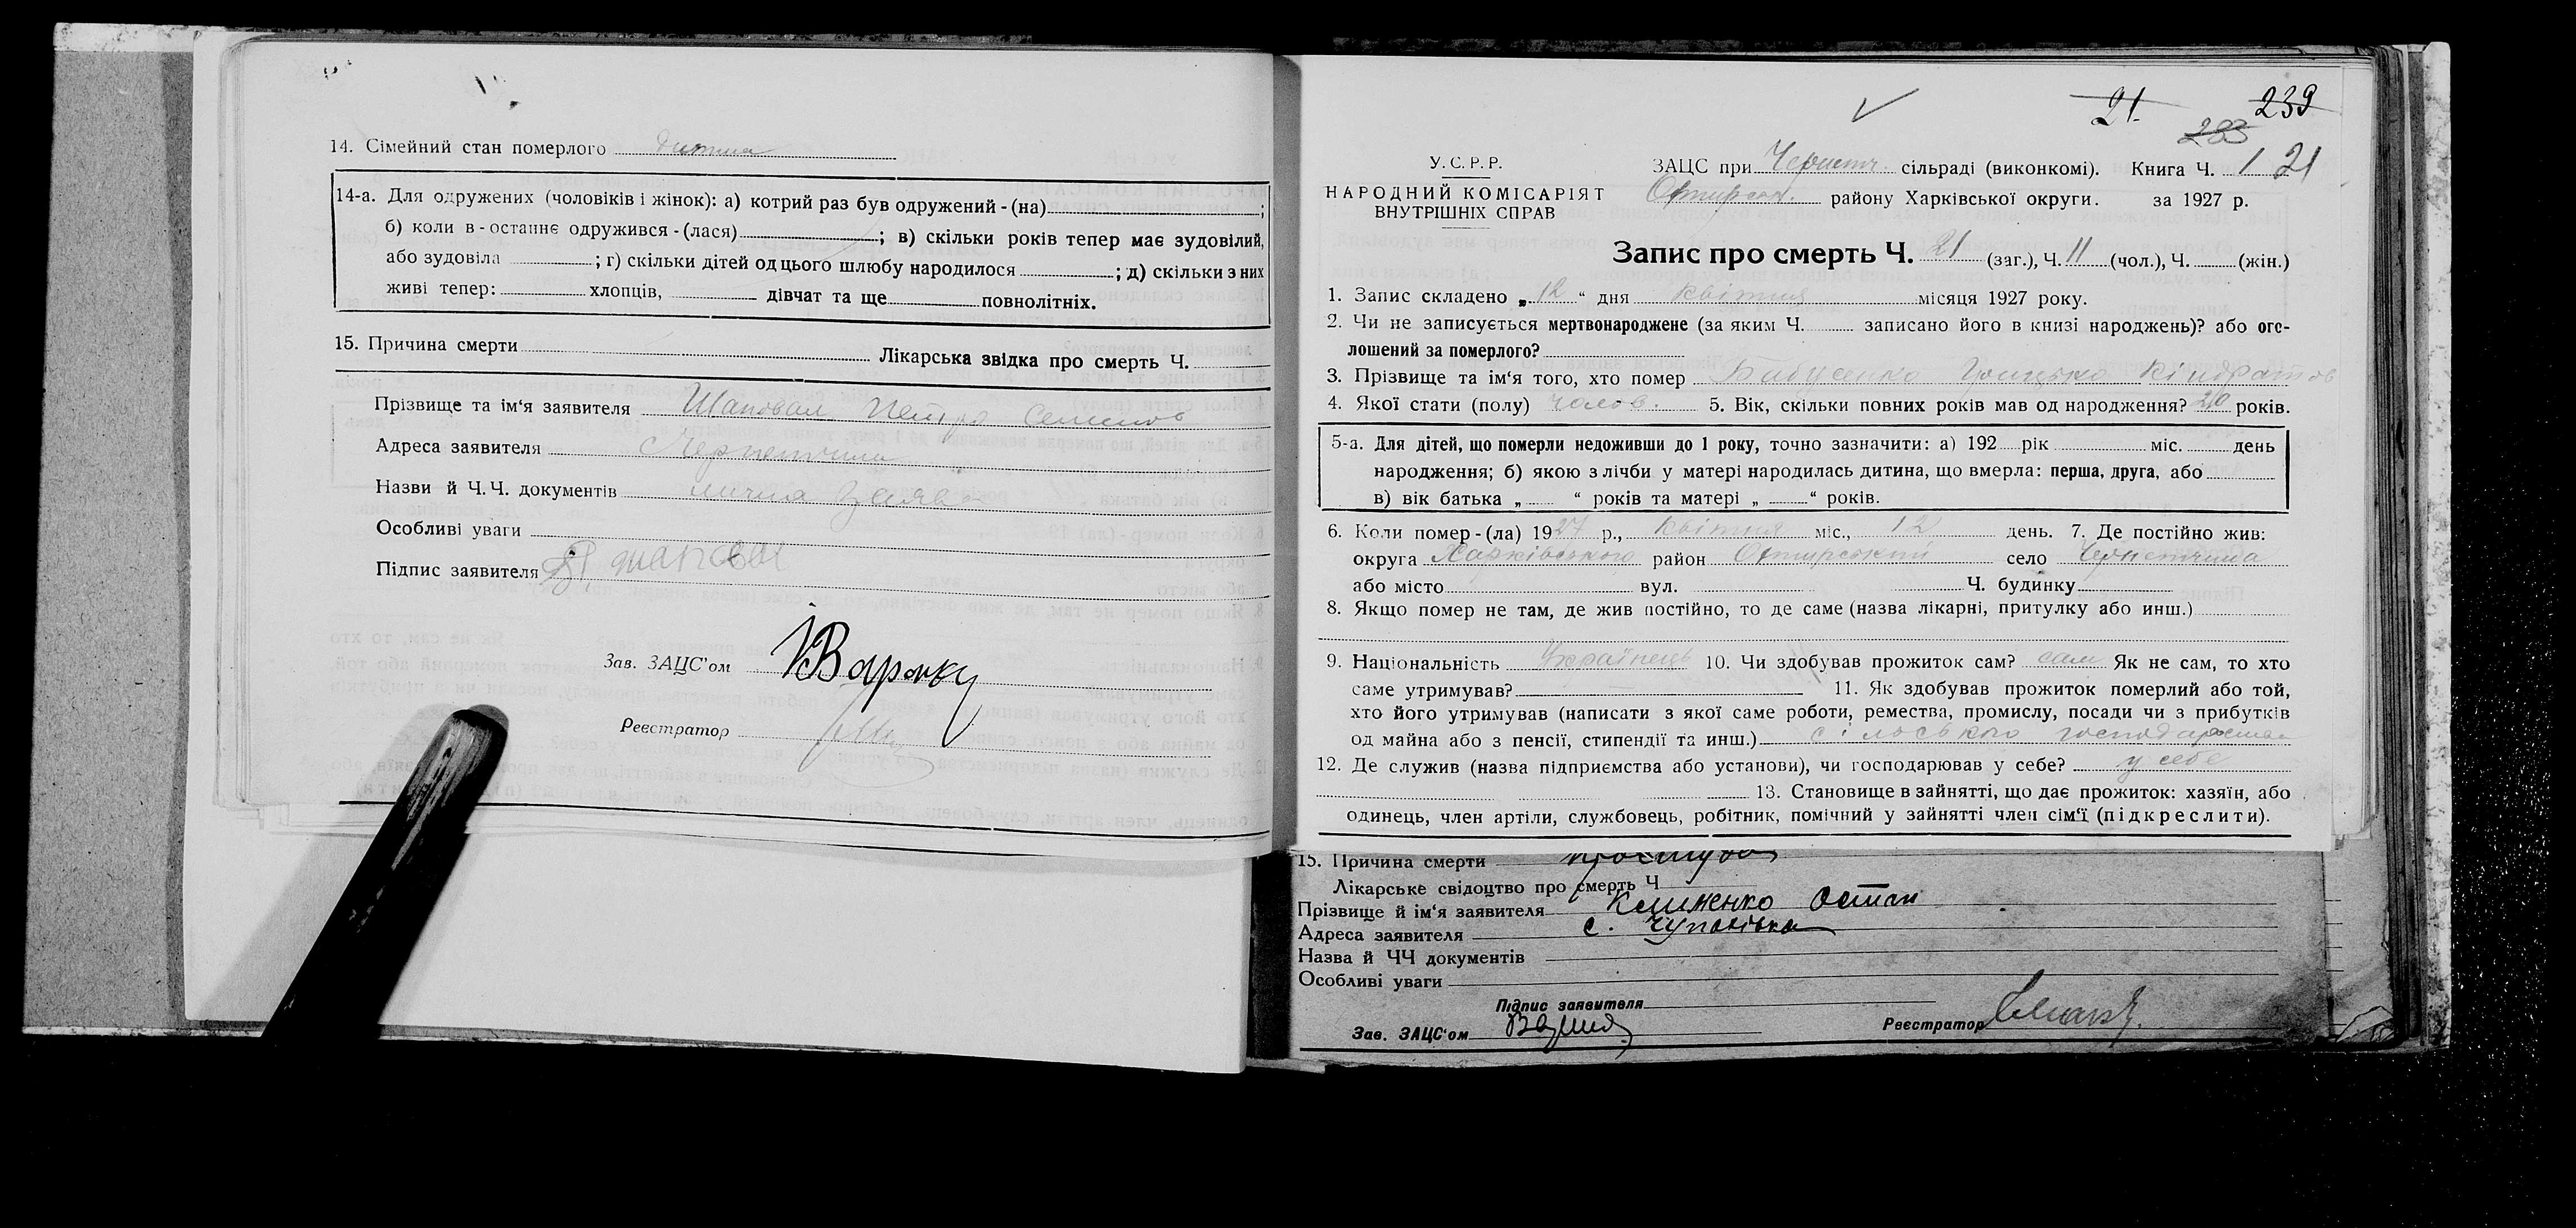 14. Сімейний стан померлого дитина
14-а. Для одружених (чоловіків і жінок): а) котрий раз був одружений - (на) ;
б) коли в - останнє одружився - (лася) ; в) скільки років тепер має зудовілий,
або зудовіла ; г) скільки дітей од цього шлюбу народилося ; д) скільки з них
живі тепер: хлопців, дівчат та ще повнолітніх.
15. Причина смерти Лікарська звідка про смерть Ч.
Прізвище та ім‘я заявителя Шаповал Петро Семенов
Адреса заявителя Чернетчина
Назви й Ч.Ч. документів лична заява
Особливі уваги
Підпис заявителя П. Шаповал
Зав. ЗАЦС'ом
Реєстратор
21. 239
283
У.С.Р.Р. ЗАЦС при Чернетч. сільраді (виконкомі). Книга Ч. 1 21
НАРОДНИЙ КОМІСАРІЯТ Охтирськ. району Харківської округи. за 1927 р.
ВНУТРІШНІХ СПРАВ
Запис про смерть Ч. 21 (заг.), Ч. 11 (чол.), Ч. (жін.)
1. Запис складено „ 12 “ дня квітня місяця 1927 року.
2. Чи не записується мертвонароджене (за яким Ч. записано його в книзі народжень)? або ого-
лошений за померлого?
3. Прізвище та ім‘я того, хто помер Бабусенко Грицько Кіндратов
4. Якої стати (полу) чолов. 5. Вік, скільки повних років мав од народження? років.
5-а. Для дітей, що померли недоживши до 1 року, точно зазначити: а) 192 рік міс. день
народження; б) якою з лічби у матері народилась дитина, що вмерла: перша, друга, або
в) вік батька „ “ років та матері „ “ років.
6. Коли помер - (ла) 1927 р., квітня міс., 12 день. 7. Де постійно жив:
округа Харківського район Охтирський село Чернетчина
або місто вул. Ч. будинку
8. Якщо помер не там, де жив постійно, то де саме (назва лікарні, притулку або инш.)
9. Національність Українець 10. Чи здобував прожиток сам? сам Як не сам, то хто
саме утримував? 11. Як здобував прожиток померлий або той,
хто його утримував (написати з якої саме роботи, ремества, промислу, посади чи з прибутків
од майна або з пенсії, стипендії та инш.) сільського господарства
12. Де служив (назва підприємства або установи), чи господарював у себе? у себе
13. Становище в зайнятті, що дає прожиток: хазяїн, або
одинець, член артіли, службовець, робітник, помічний у зайнятті член сім‘ї (підкреслити).
15. Причина смерти простуда
Лікарське свідоцтво про смерть Ч
Прізвище й ім‘я заявителя Клименко Остап
Адреса заявителя с. Чупахівка
Назва й ЧЧ документів
Особливі уваги
Підпис заявителя
Зав. ЗАЦС‘ом Реєстратор